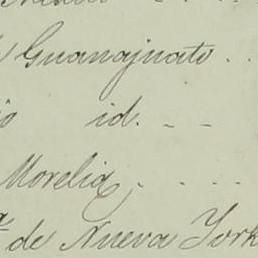 Guanajuato . .
id. - -
Morelia . . . .
de Nueva York